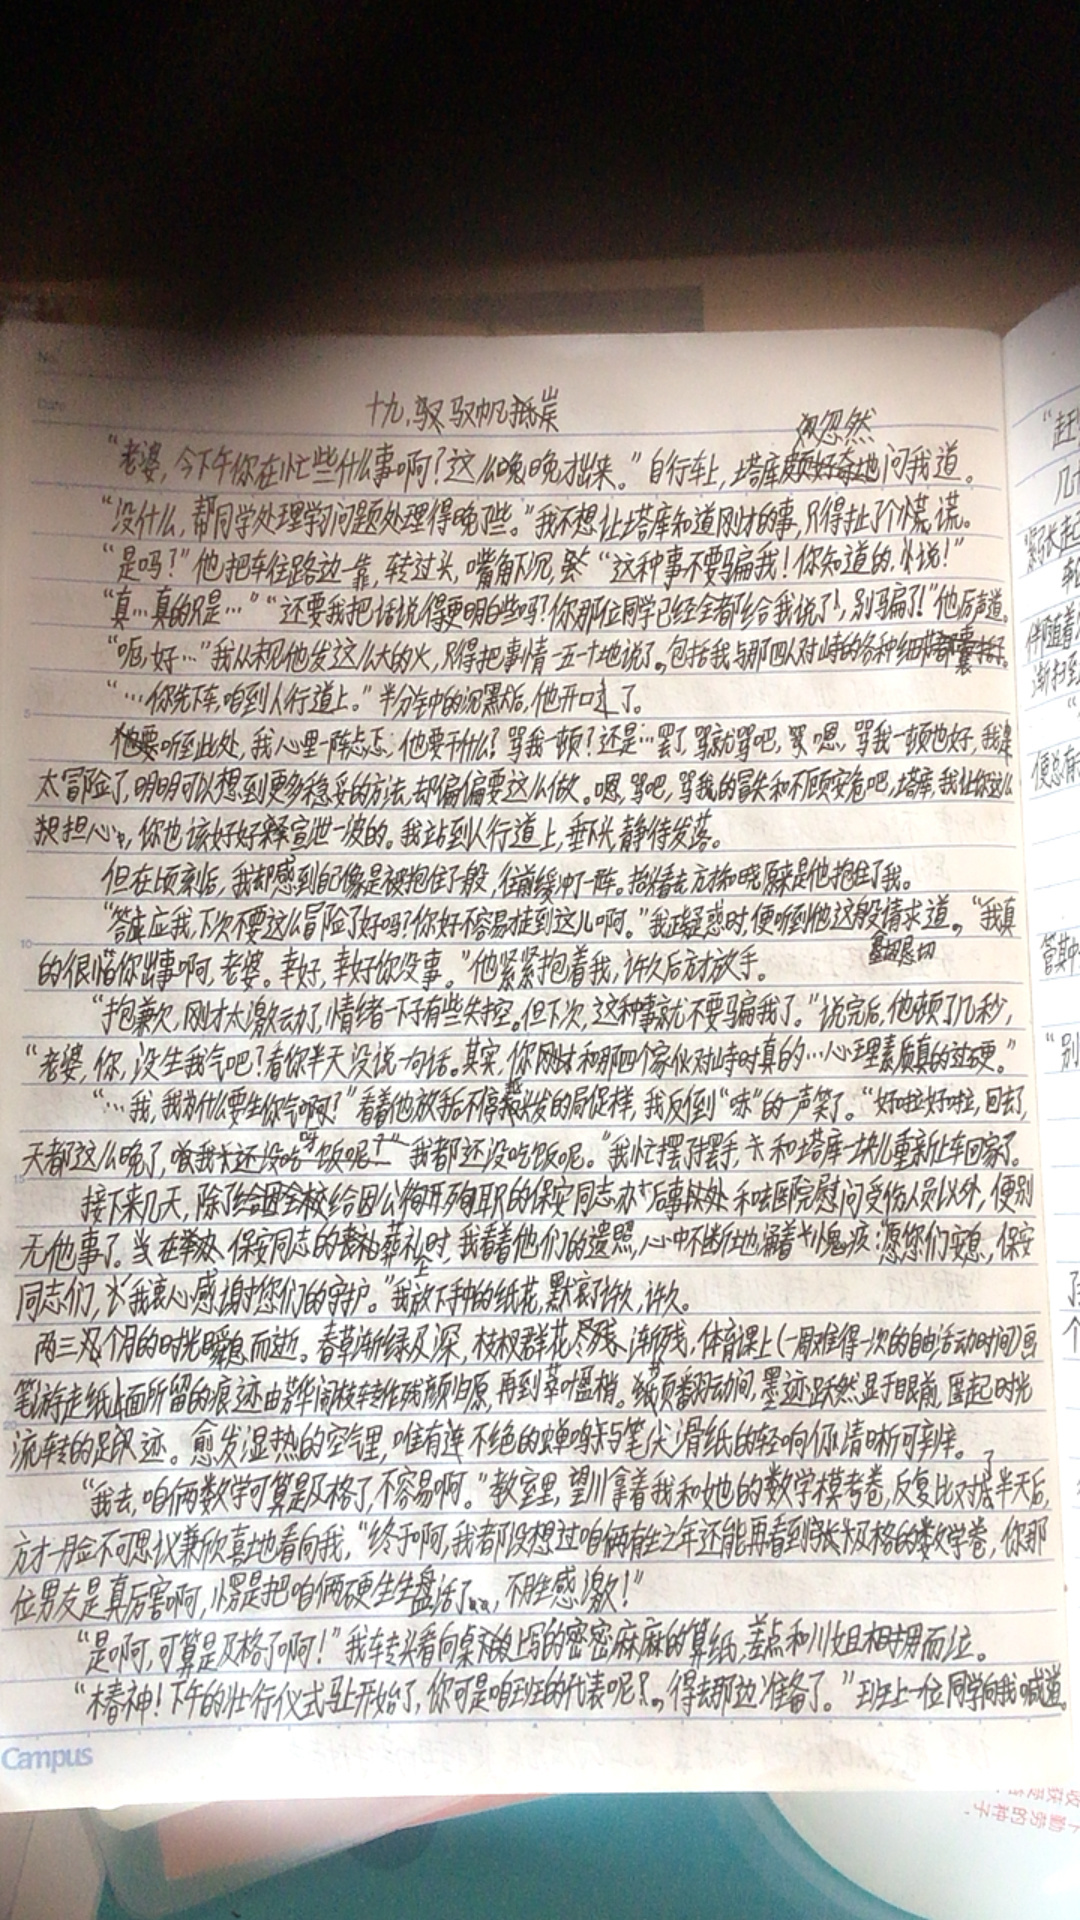 No.
Date
十九.驭帆抵岸
忽然
“老婆,今下午你在忙些什么事啊?这么晚晚才出来。”自行车上,塔库问我道。
“没什么,帮同学处理学习问题处理得晚了些。”我不想让塔库知道刚才的事,只得扯了个谎。
“是吗?”他把车往路边一靠,转过头,嘴角下沉,“这种事不要骗我!你知道的.说!”
“真…真的只是…”“还要我把话说得更明白些吗?你那位同学已经全都给我说了!,别骗了!”他厉声道。
“呃,好…”我从未见他发这么大的火,只得把事情一五一十地说了。包括我与那四人对峙的各种细节
“…你先下车,咱到人行道上。”半分钟的沉默后,他开口了。
听至此处,我心里一阵忐忑:他要干什么?骂我一顿?还是…罢了,骂就骂吧,嗯,骂我一顿也好,我是
太冒险了,明明可以想到更多稳妥的方法,却偏偏要这么做。嗯,骂吧,骂我的冒失和不顾安危吧,塔库,我让你这么
担心,你也该好好宣泄一波的。我站到人行道上,垂下头,静待发落。
但在顷刻后,我却感到自己像是被抱住了般,往前缓冲了一阵。抬头看去方才知晓原来是他抱住了我。
“答应我,下次不要这么冒险了好吗?你好不容易才走到这儿啊。”我正疑惑时,便听到他这般请求道。“我真
恳切
的很怕你出事啊,老婆。幸好,幸好你没事。”他紧紧抱着我,许久后方才放手。
“抱歉,刚才太激动了,情绪一下子有些失控。但下次,这种事就不要骗我了。”说完后,他顿了几秒,
“老婆,你,没生我气吧?看你半天没说一句话。其实,你刚才和那四个家伙对峙时真的…心理素质真的过硬。”
“…我,我为什么要生你气啊?”看着他放手后不停挠头发的局促样,我反倒“哧”的一声笑了。“好啦好啦,回去了,
天都这么晚了,我都还没吃饭呢。”我忙摆了摆手,和塔库一块儿重新上车回家了。
接下来几天,除了给因公殉职的保安同志办后事以及和去医院慰问受伤人员以外,便别
无他事了。在保安同志的葬礼上,我看着他们的遗照,心中不断地涌着愧疚:“愿您们安息,保安
同志们,我衷心感谢您们的守护。”我放下手中的纸花,默哀了许久,许久。
两三个月的时光瞬息而逝。春草渐绿及深,枝杈群花渐残,体育课上(一周难得一次的自由活动时间)画
笔游走纸上面所留的痕迹由芳华闹枝转作残颜归原,再到萃叶盈梢。纸页翻动间,墨迹跃然显于眼前,匿起时光
流转的足迹。愈发湿热的空气里,唯有连不绝的蝉鸣与笔尖滑纸的轻响依清晰可辨。
“我去,咱俩数学可算是及格了,不容易啊。”教室里,望川拿着我和她的数学模考卷,反复比对了半天后,
方才一脸不可思议兼欣喜地看向我,“终于啊,我都没想过咱俩有生之年还能再看到张及格的数学卷,你那
位男友是真厉害啊,愣是把咱俩硬生生盘活了,不胜感激!”
“是啊,可算是及格了啊!”我转头看向桌上写的密密麻麻的算纸,差点和川姐相拥而泣。
“椿神!下午的壮行仪式马上开始了,你可是咱班的代表呢!,得去那边准备了。”班上一位同学向我喊道。
Campus